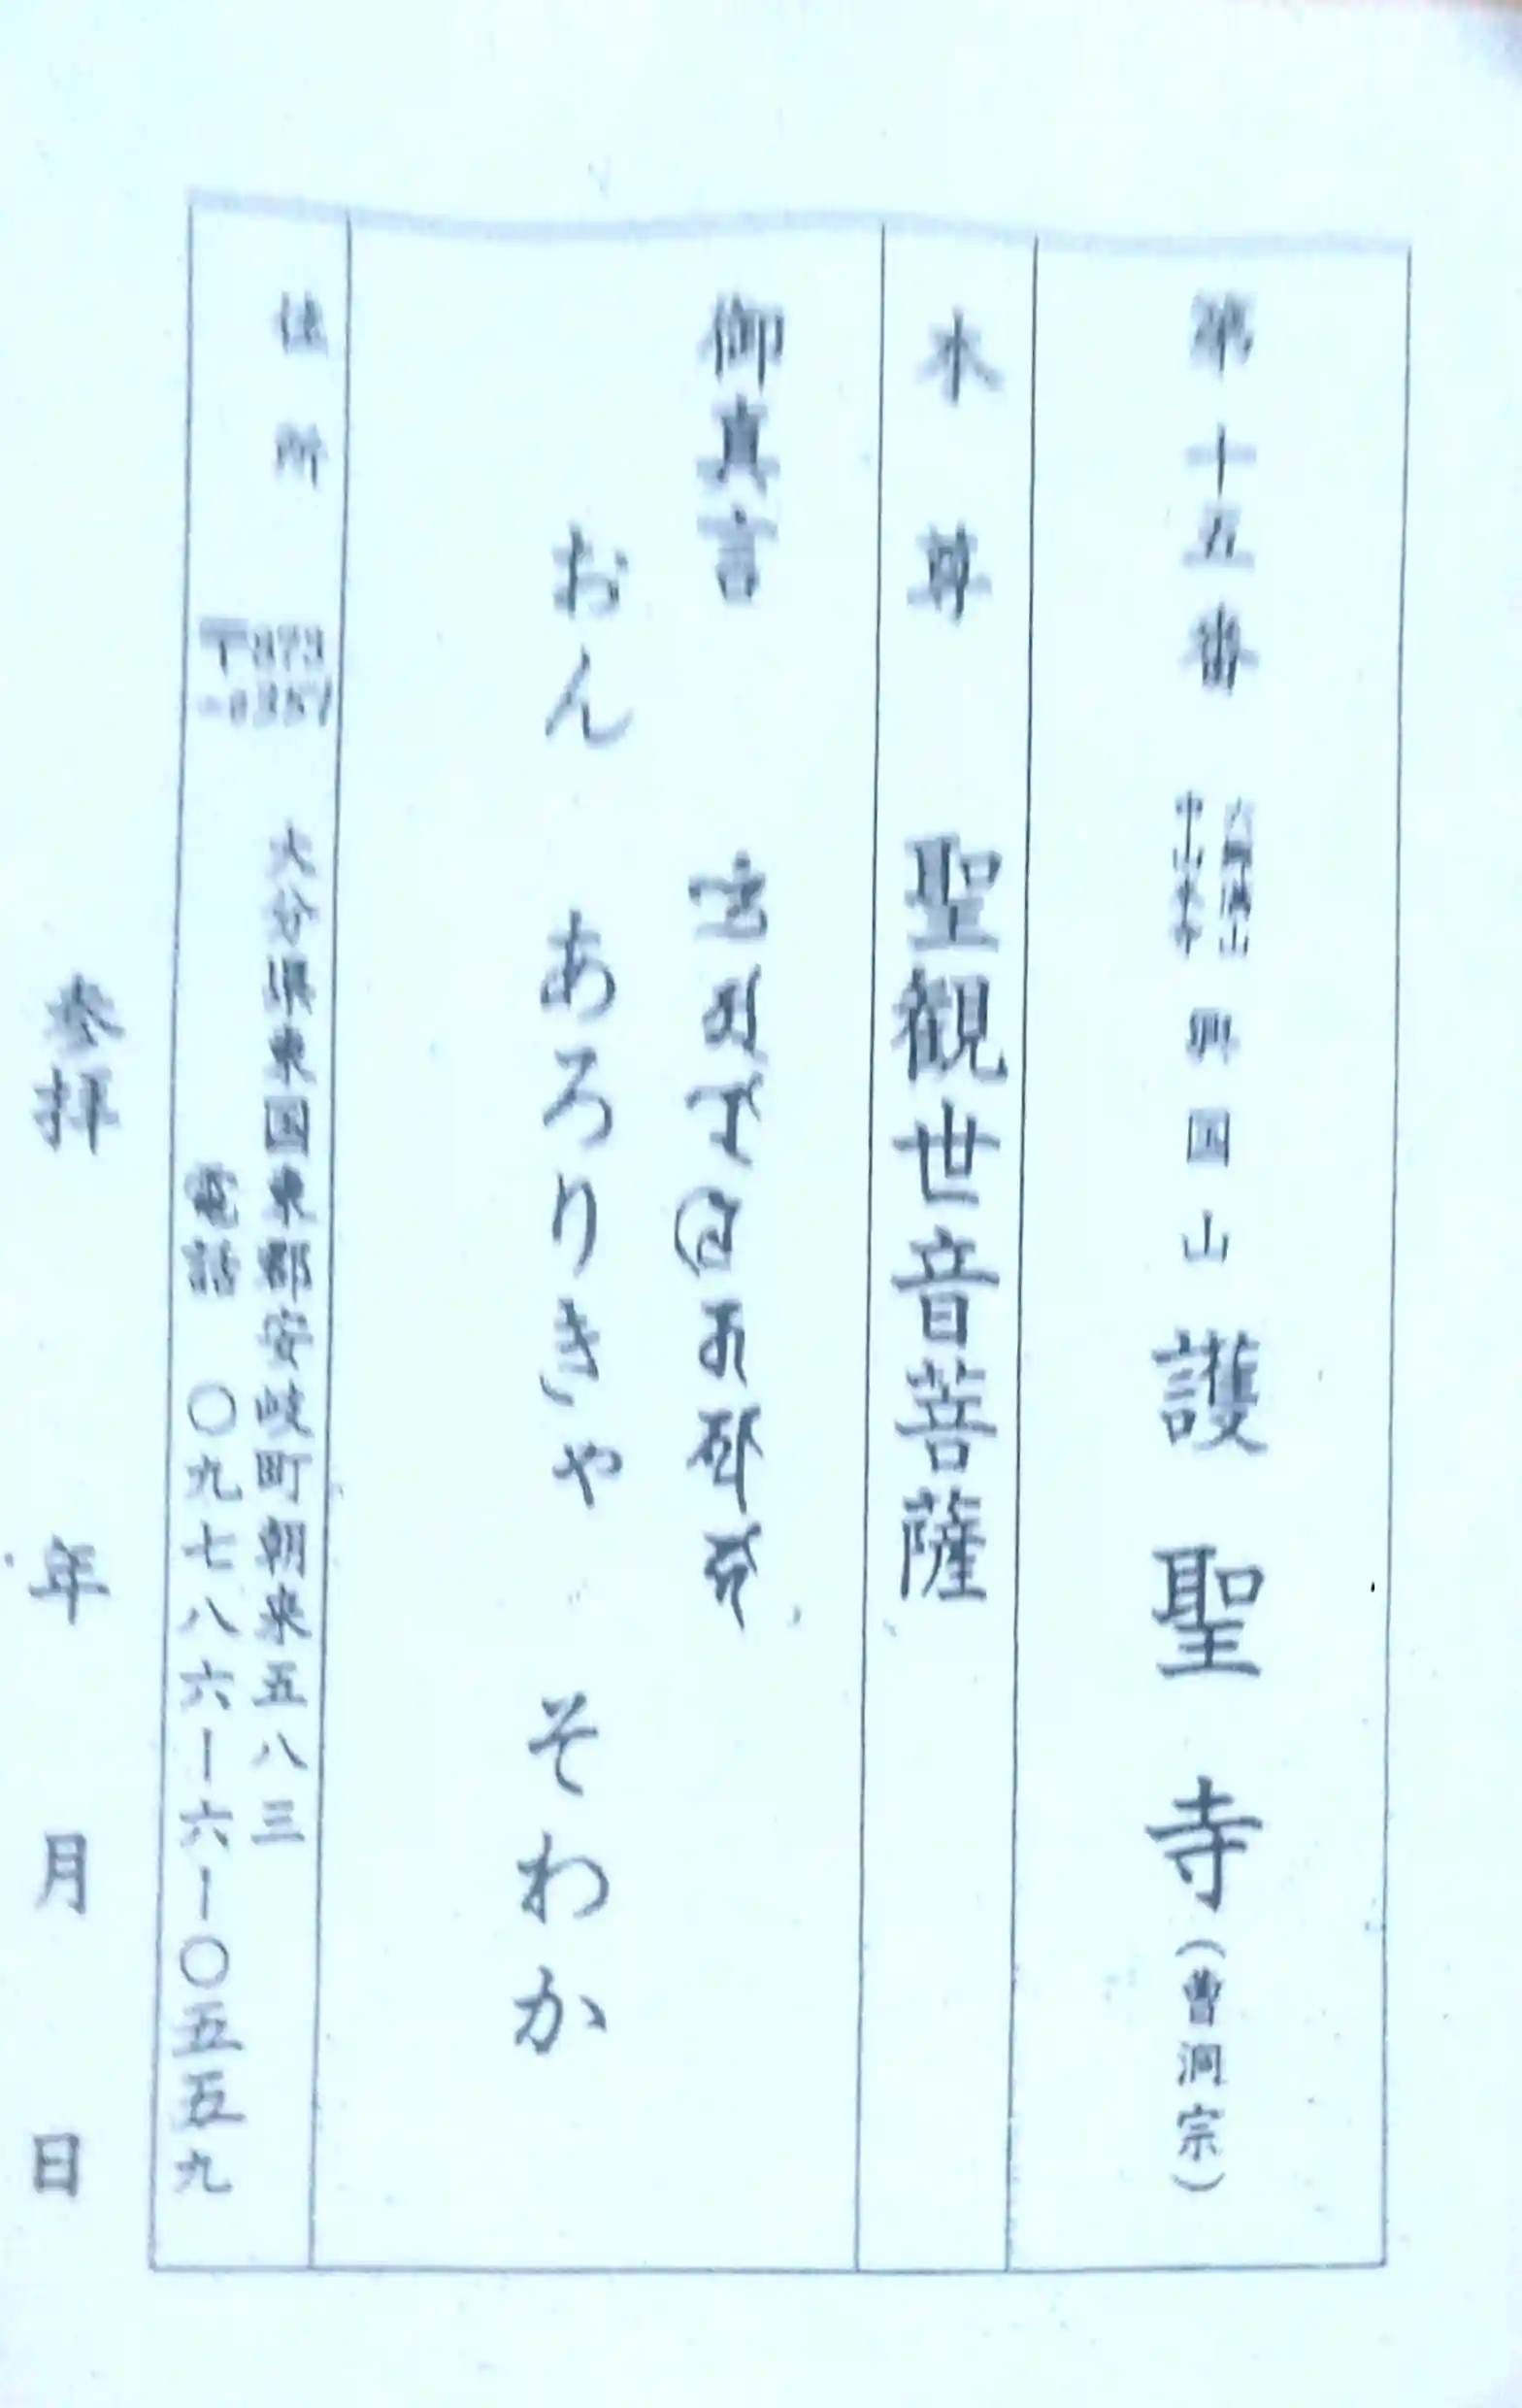 第十五番 六郷満山 中山本寺 興国山 護聖寺(曹洞宗)
本尊 聖観世音菩薩
御真言
おん あろりきゃ そわか
住所 〒873-0357 大分県東国東郡安岐町朝来五八三
電話 〇九七八六ー六ー〇五五九
参拝 年 月 日